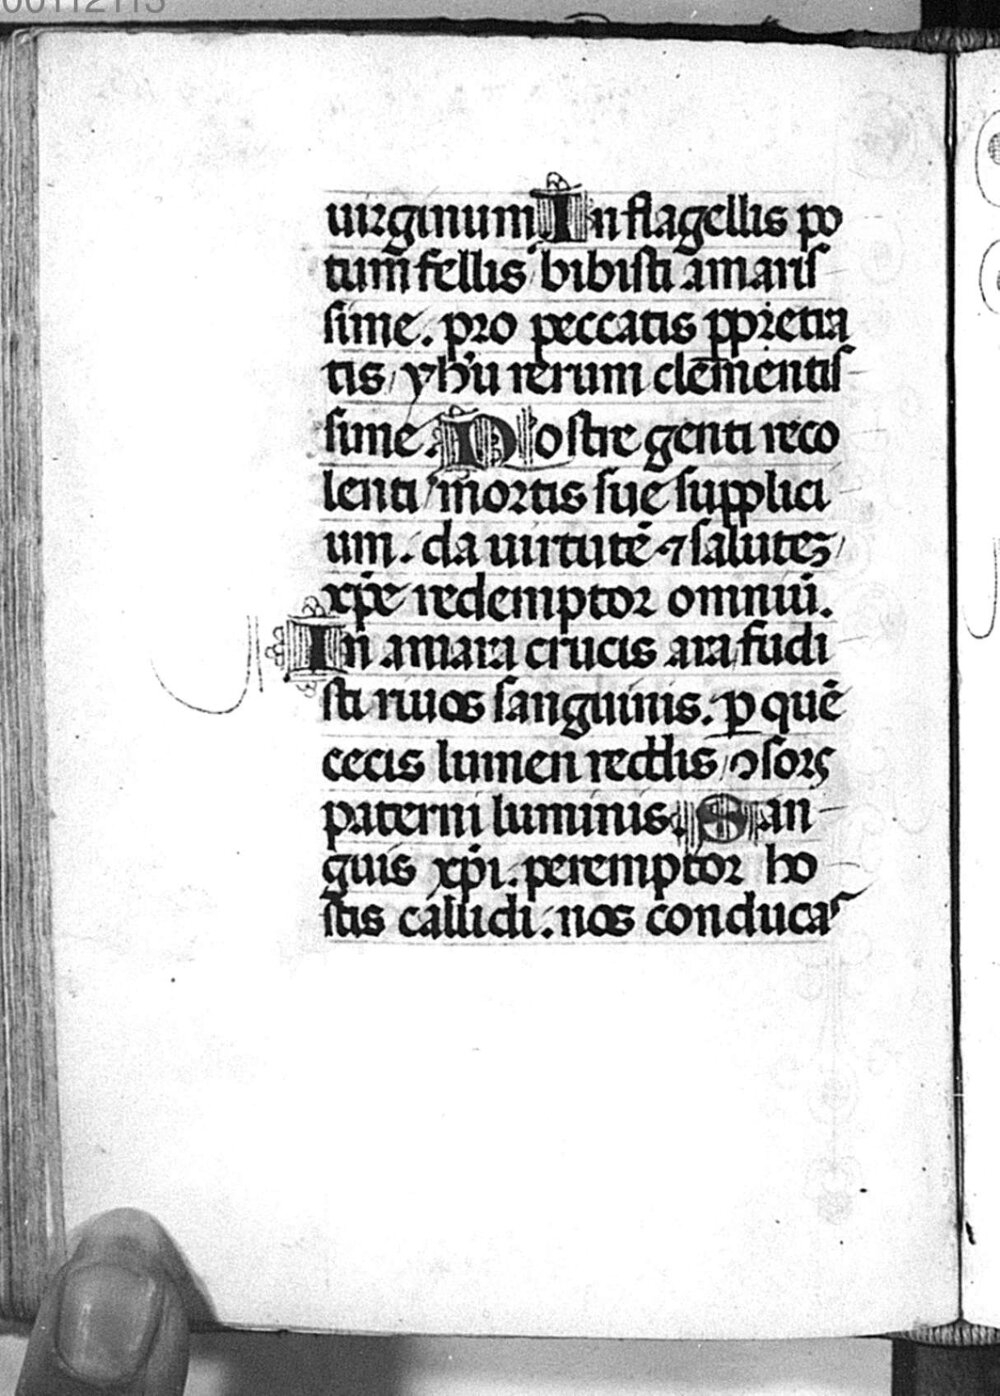 00112113
uirginum In flagellis po
tum fellis bibisti amaris
sime. pro peccatis ppetra
tis / yhu rerum clementis
sime. Nostre genti reco
lenti mortis sue supplici
um. da uirtutē ⁊ salutez /
xp̄e redemptor omniū.
In amara crucis ara fudi
sti riuos sanguinis. ꝑ quē
cecis lumen reddis / ꝯsors
paterni luminis. San
guis xp̄i. peremptor ho
stis callidi. nos conducas